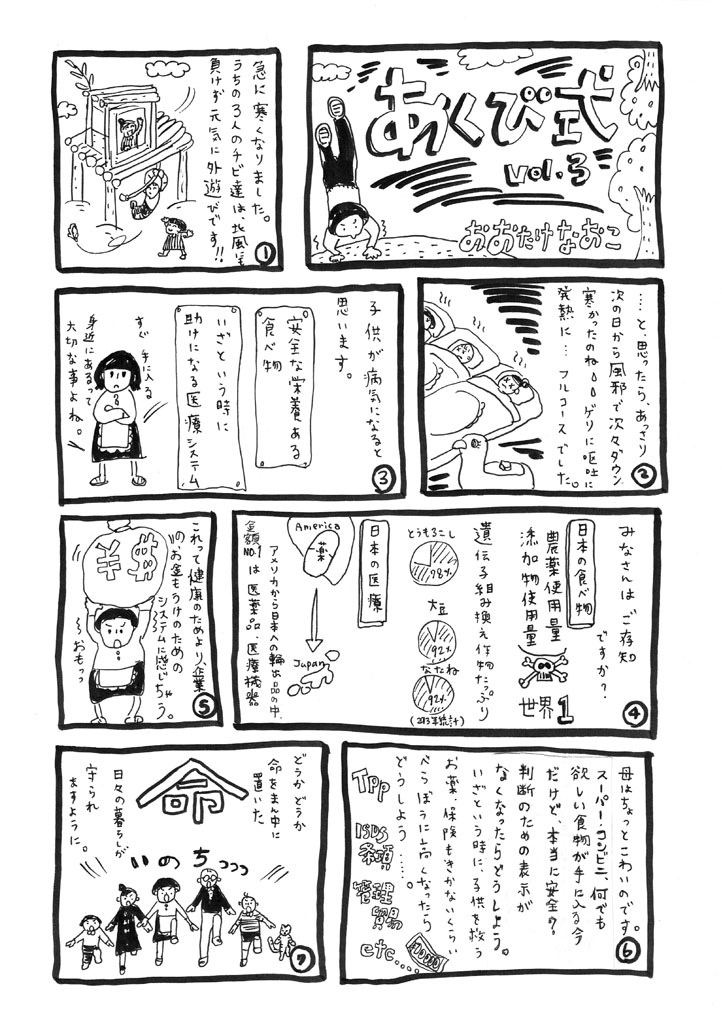 あくび式
vol.3
おおたけなおこ
急に寒くなりました。
うちの3人のチビ達は、北風にも
負けず元気に外遊びです!!
1
……と、思ったら、あっさり
次の日から風邪で次々ダウン
寒かったのね。。。ゲリに嘔吐に
発熱に…フルコースでした。
2
子供が病気になると
思います。
安全な栄養ある
食べ物
いざという時に
助けになる医療システム
すぐ手に入る
身近にあるって
大切な事よね。
3
みなさんはご存知
ですか?
日本の食べ物
農薬使用量
添加物使用量
世界1
遺伝子組み換え作物たっぷり
とうもろこし
98%
大豆
92%
なたね
92%
(2013年統計)
日本の医療
America
薬
Japan
アメリカから日本への輸出品の中、
金額NO.1は医薬品・医療機器
4
これって健康のためより、企業
のお金もうけのための
システムに感じちゃう。
¥$
〜おもっっ
5
母はちょっとこわいのです。
スーパー・コンビニ、何でも
欲しい食物が手に入る今
だけど、本当に安全?
判断のための表示が
なくなったらどうしよう。
いざという時に、子供を救う
お薬、保険もきかないくらい
べらぼうに高くなったら
どうしよう……。
TPP
ISDS
条項
管理
貿易
etc....
6
どうかどうか
命をまん中に
置いた
日々の暮らしが
守られ
ますように。
命
いのちっっっ
7